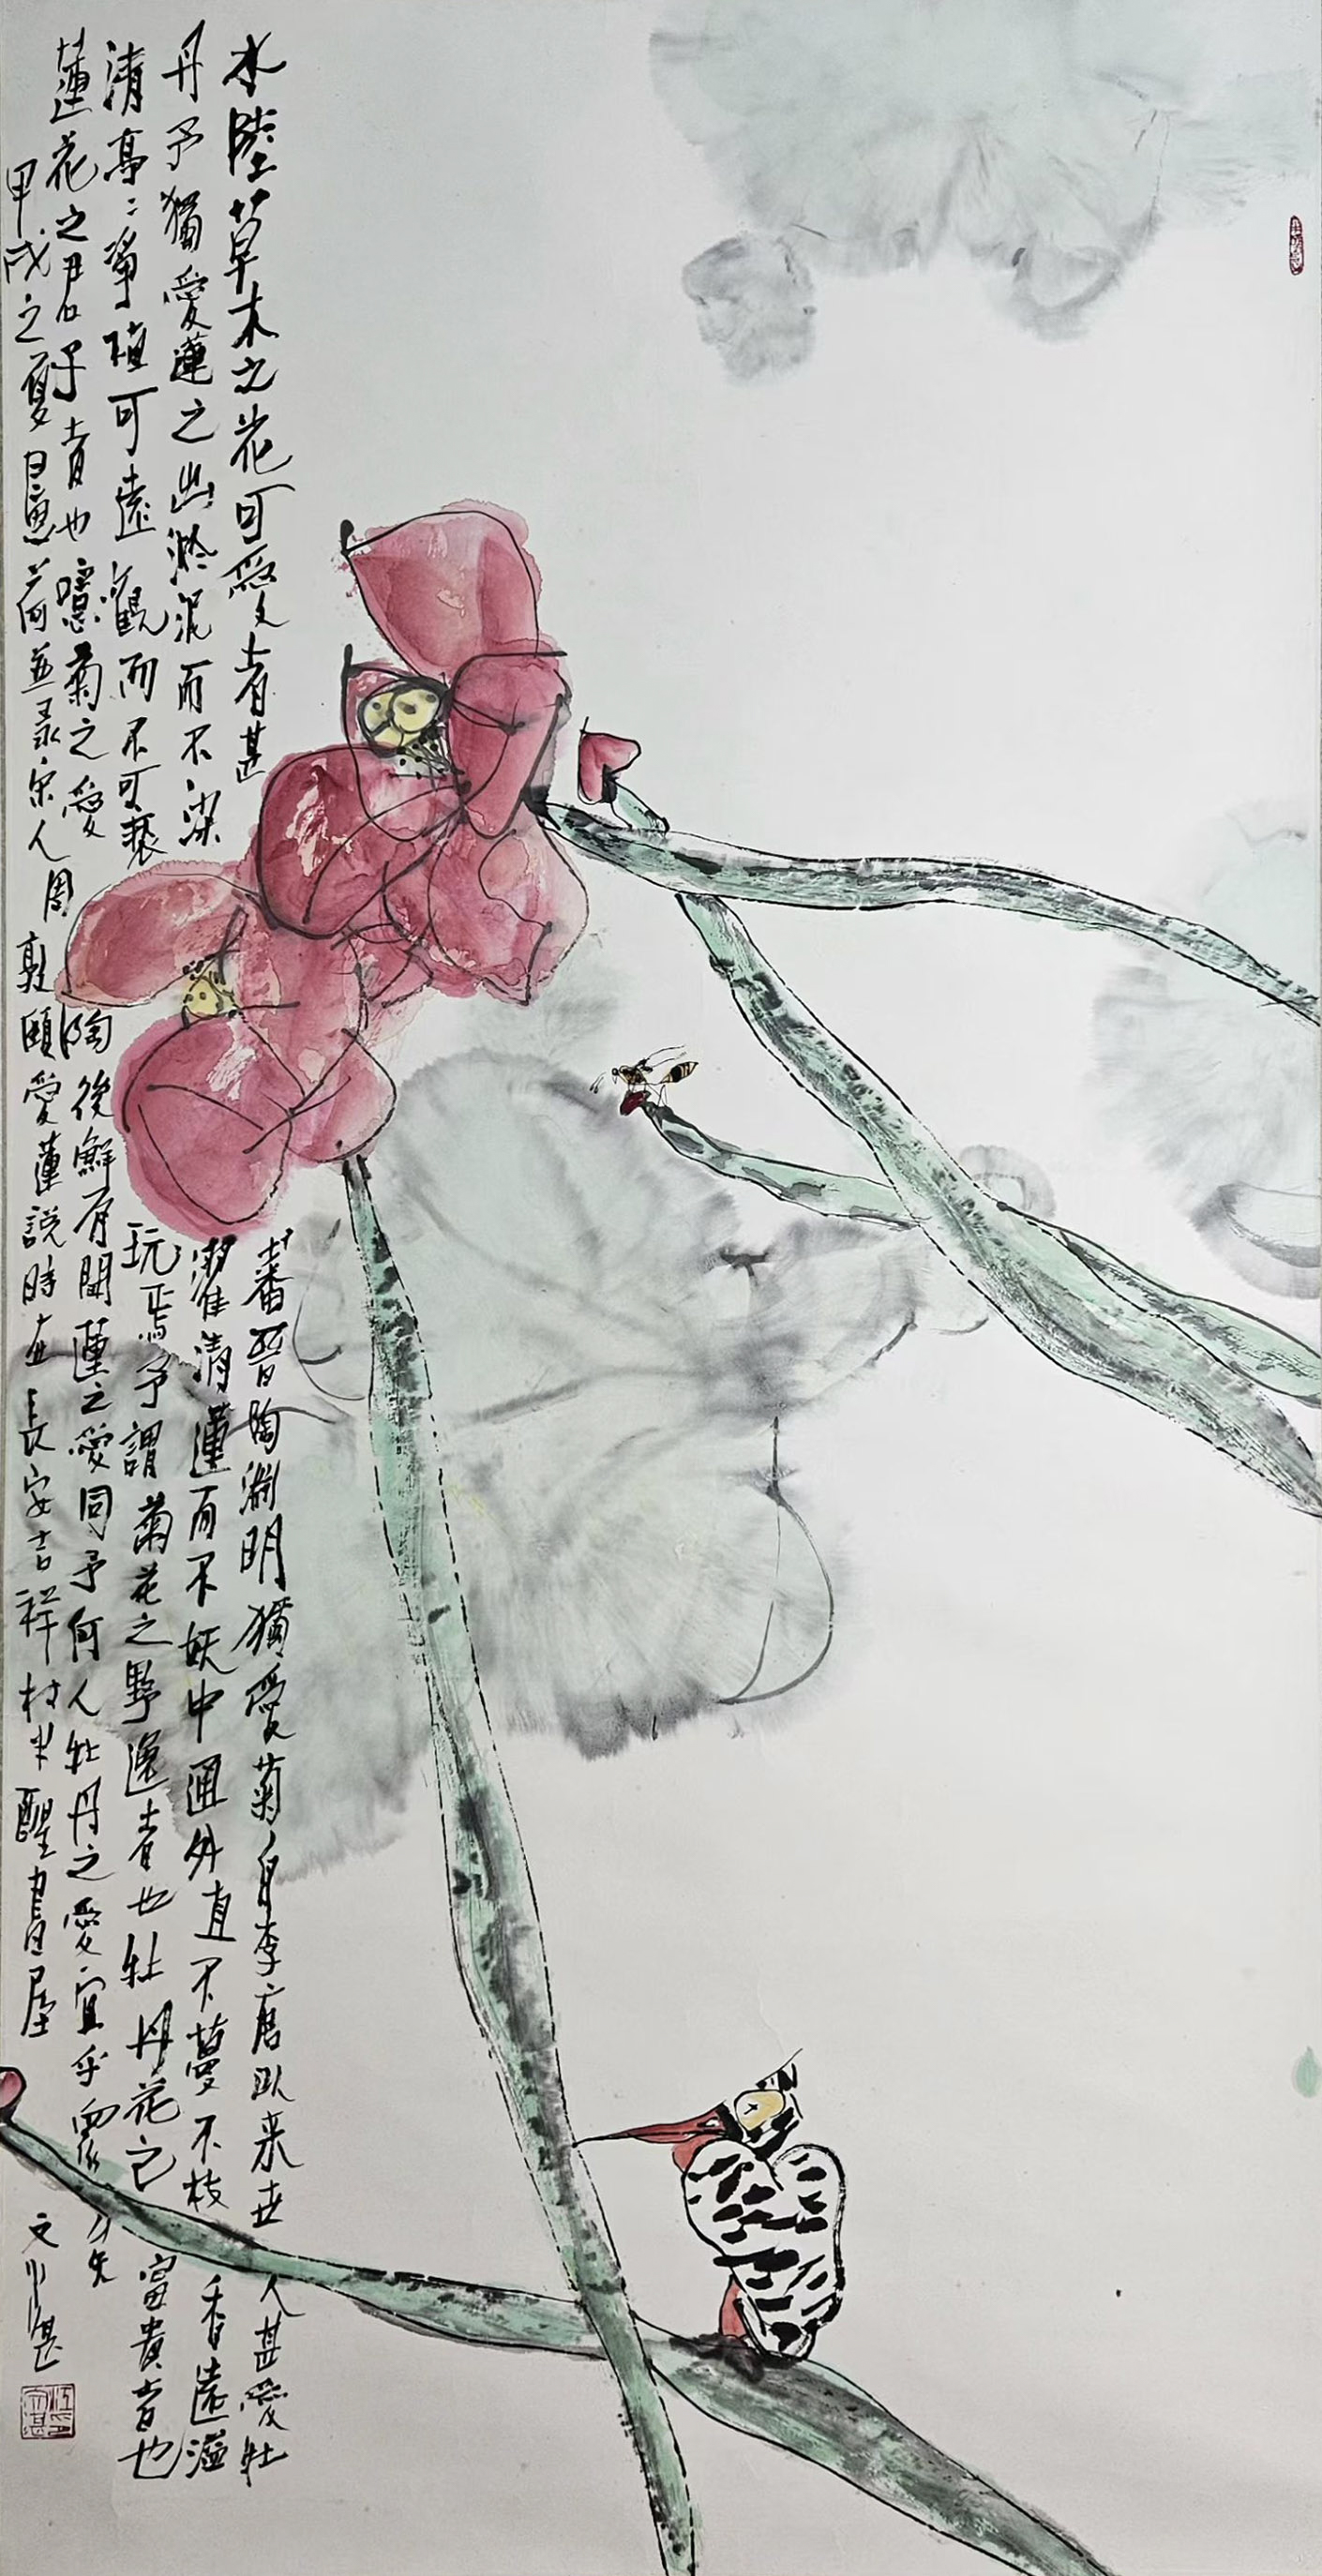 水陸草木之花可愛者甚蕃晋陶淵明獨愛菊自李唐以来世人甚愛牡
丹予獨愛蓮之出淤泥而不染濯清漣而不妖中通外直不蔓不枝香遠溢
清亭〻淨植可遠觀而不可褻玩焉予謂菊花之野逸者也牡丹花之富貴者也
蓮花之君子者也噫菊之愛陶後鮮有聞蓮之愛同予何人牡丹之愛宜乎眾矣
甲戌之夏日畫荷並录宋人周敦頤愛蓮說時在長安吉祥村半醒書屋 文湛